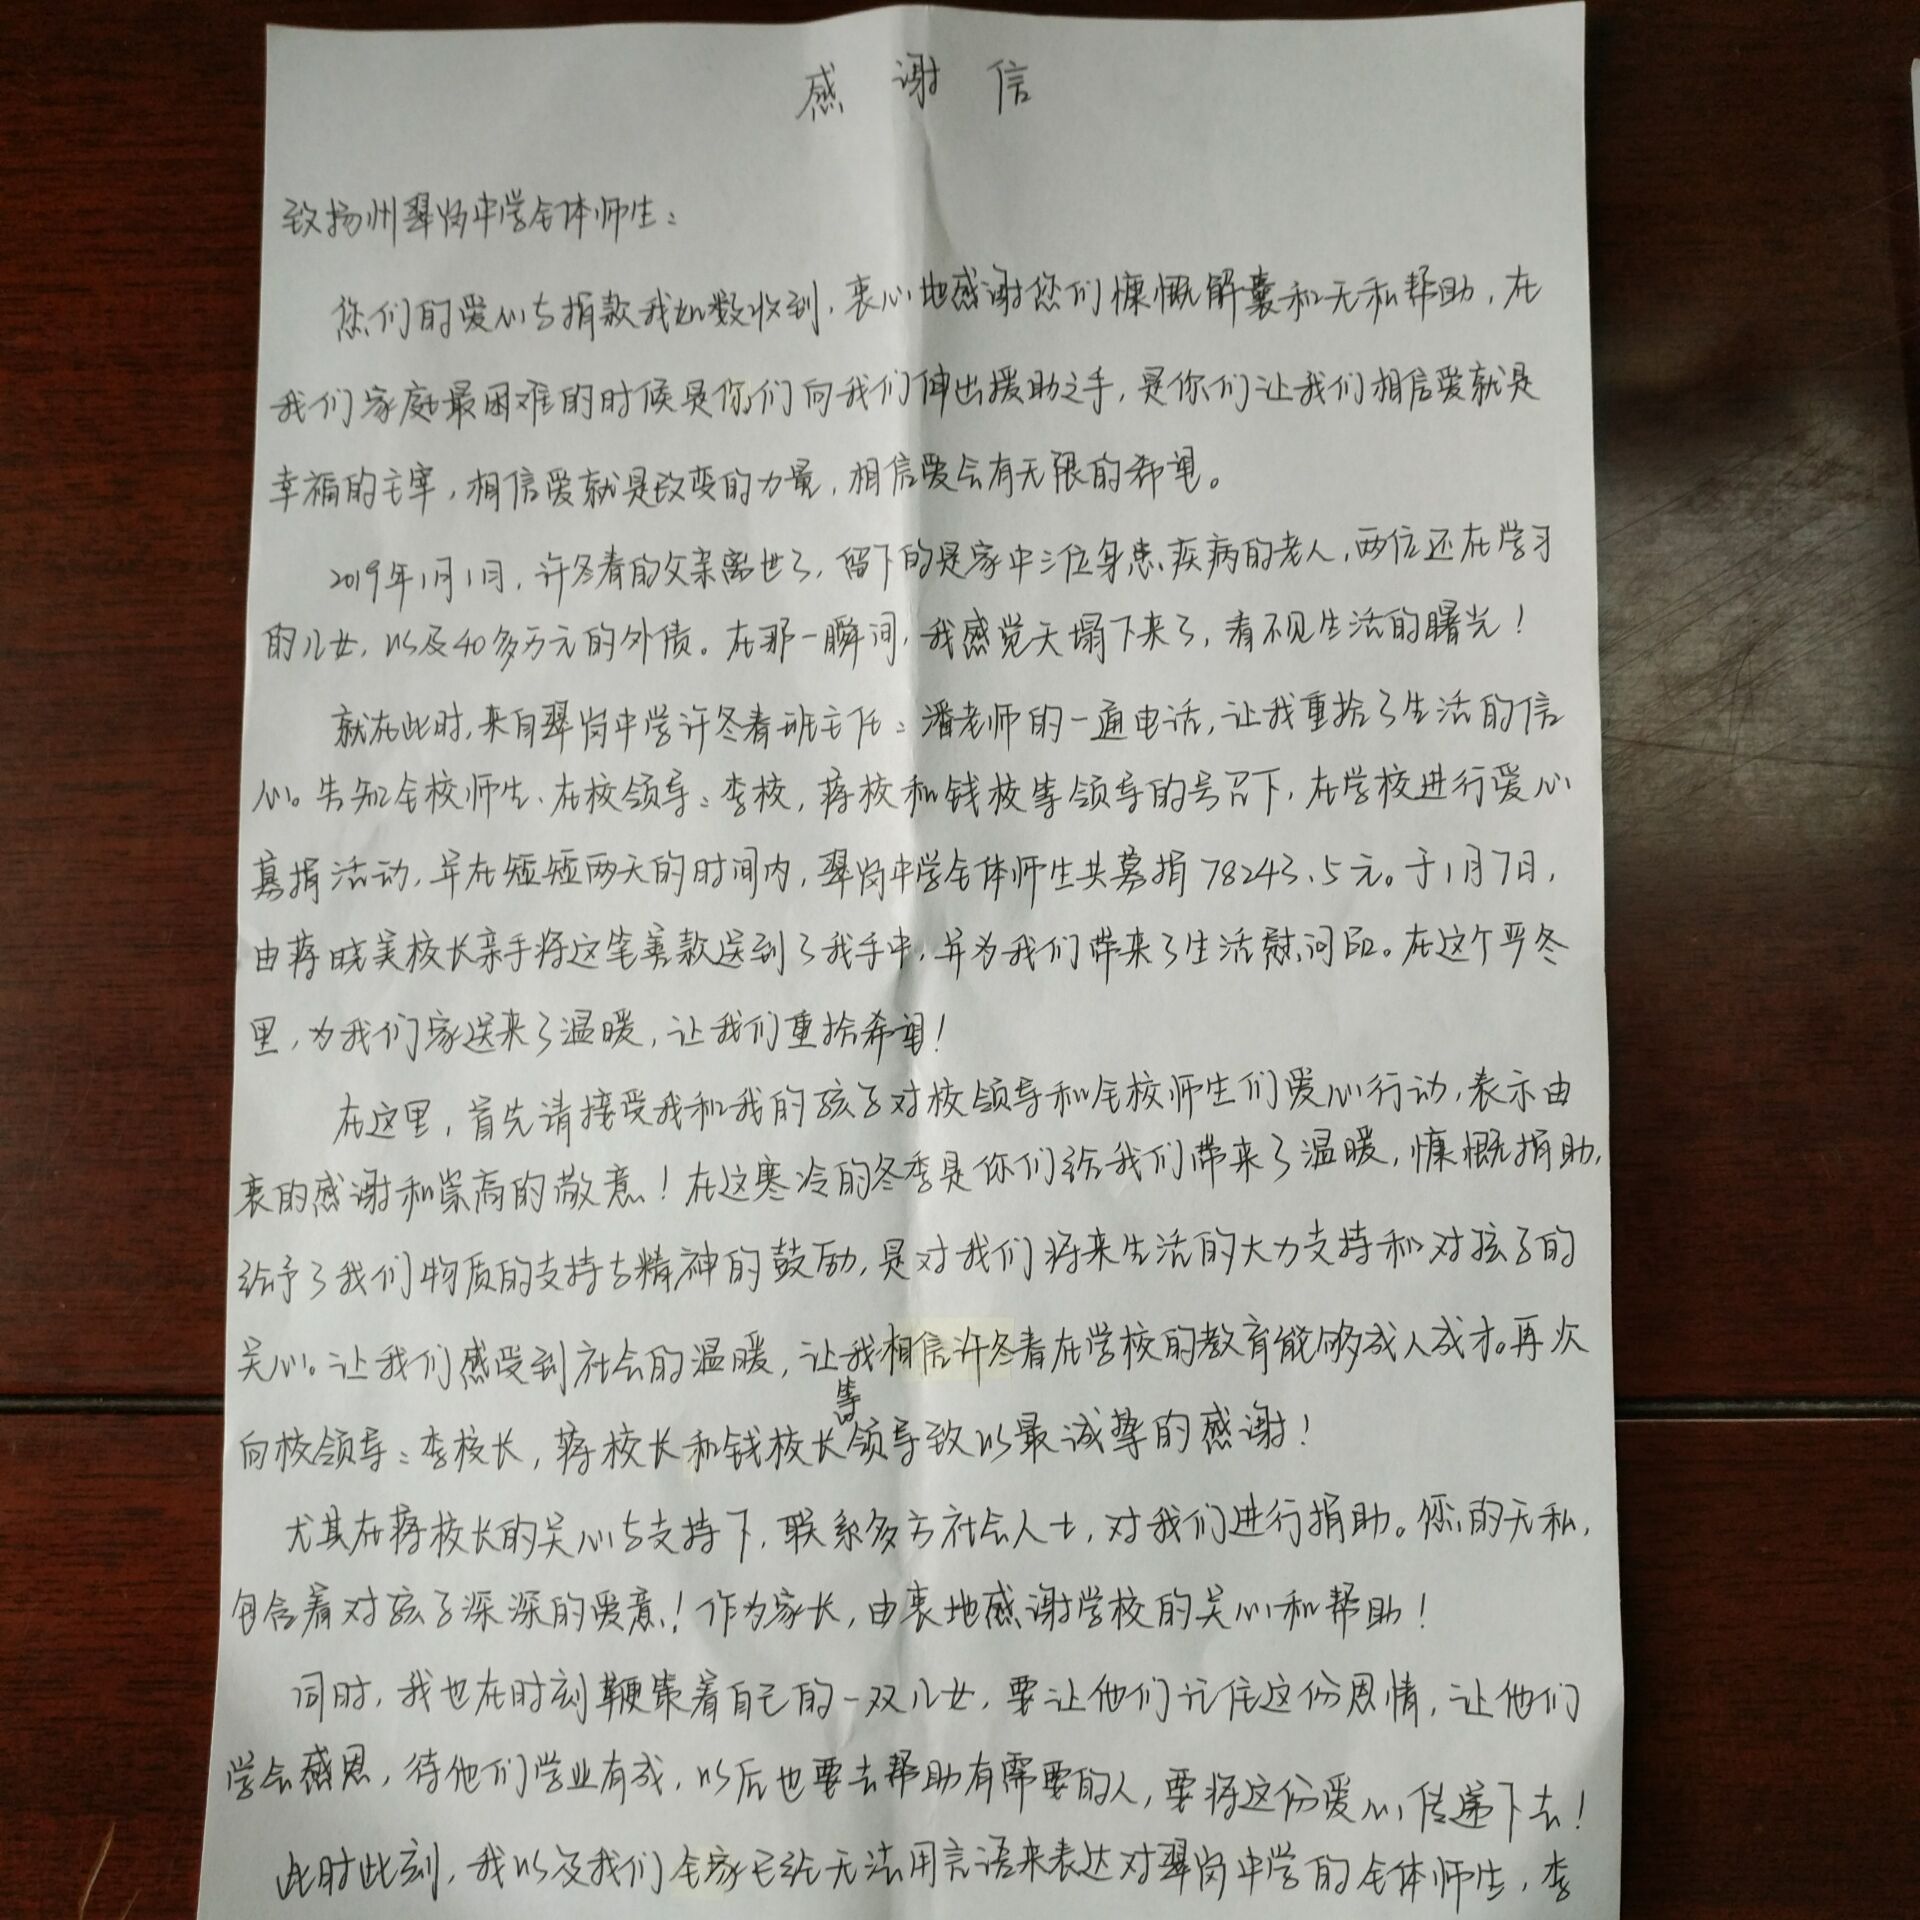 感谢信
致扬州翠岗中学全体师生：
您们的爱心与捐款我如数收到，衷心地感谢您们慷慨解囊和无私帮助，在
我们家庭最困难的时候是你们向我们伸出援助之手，是你们让我们相信爱就是
幸福的主宰，相信爱就是改变的力量，相信爱会有无限的希望。
2019年1月1日，许冬春的父亲离世了，留下的是家中三位身患疾病的老人，两位还在学习
的儿女，以及40多万元的外债。在那一瞬间，我感觉天塌下来了，看不见生活的曙光！
就在此时，来自翠岗中学许冬春班主任：潘老师的一通电话，让我重拾了生活的信
心。告知全校师生、在校领导：李校，蒋校和钱校等领导的号召下，在学校进行爱心
募捐活动，并在短短两天的时间内，翠岗中学全体师生共募捐78243.5元。于1月7日，
由蒋晓美校长亲手将这笔善款送到了我手中，并为我们带来了生活慰问品。在这个严冬
里，为我们家送来了温暖，让我们重拾希望！
在这里，首先请接受我和我的孩子对校领导和全校师生们爱心行动，表示由
衷的感谢和崇高的敬意！在这寒冷的冬季是你们给我们带来了温暖，慷慨捐助，
给予了我们物质的支持与精神的鼓励，是对我们将来生活的大力支持和对孩子的
关心。让我们感受到社会的温暖，让我相信许冬春在学校的教育能够成人成才。再次
向校领导：李校长，蒋校长和钱校长等领导致以最诚挚的感谢！
尤其在蒋校长的关心与支持下，联系多方社会人士，对我们进行捐助。您的无私，
包含着对孩子深深的爱意！作为家长，由衷地感谢学校的关心和帮助！
同时，我也在时刻鞭策着自己的一双儿女，要让他们记住这份恩情，让他们
学会感恩，待他们学业有成，以后也要去帮助有需要的人，要将这份爱心传递下去！
此时此刻，我以及我们全家已经无法用言语来表达对翠岗中学的全体师生，李